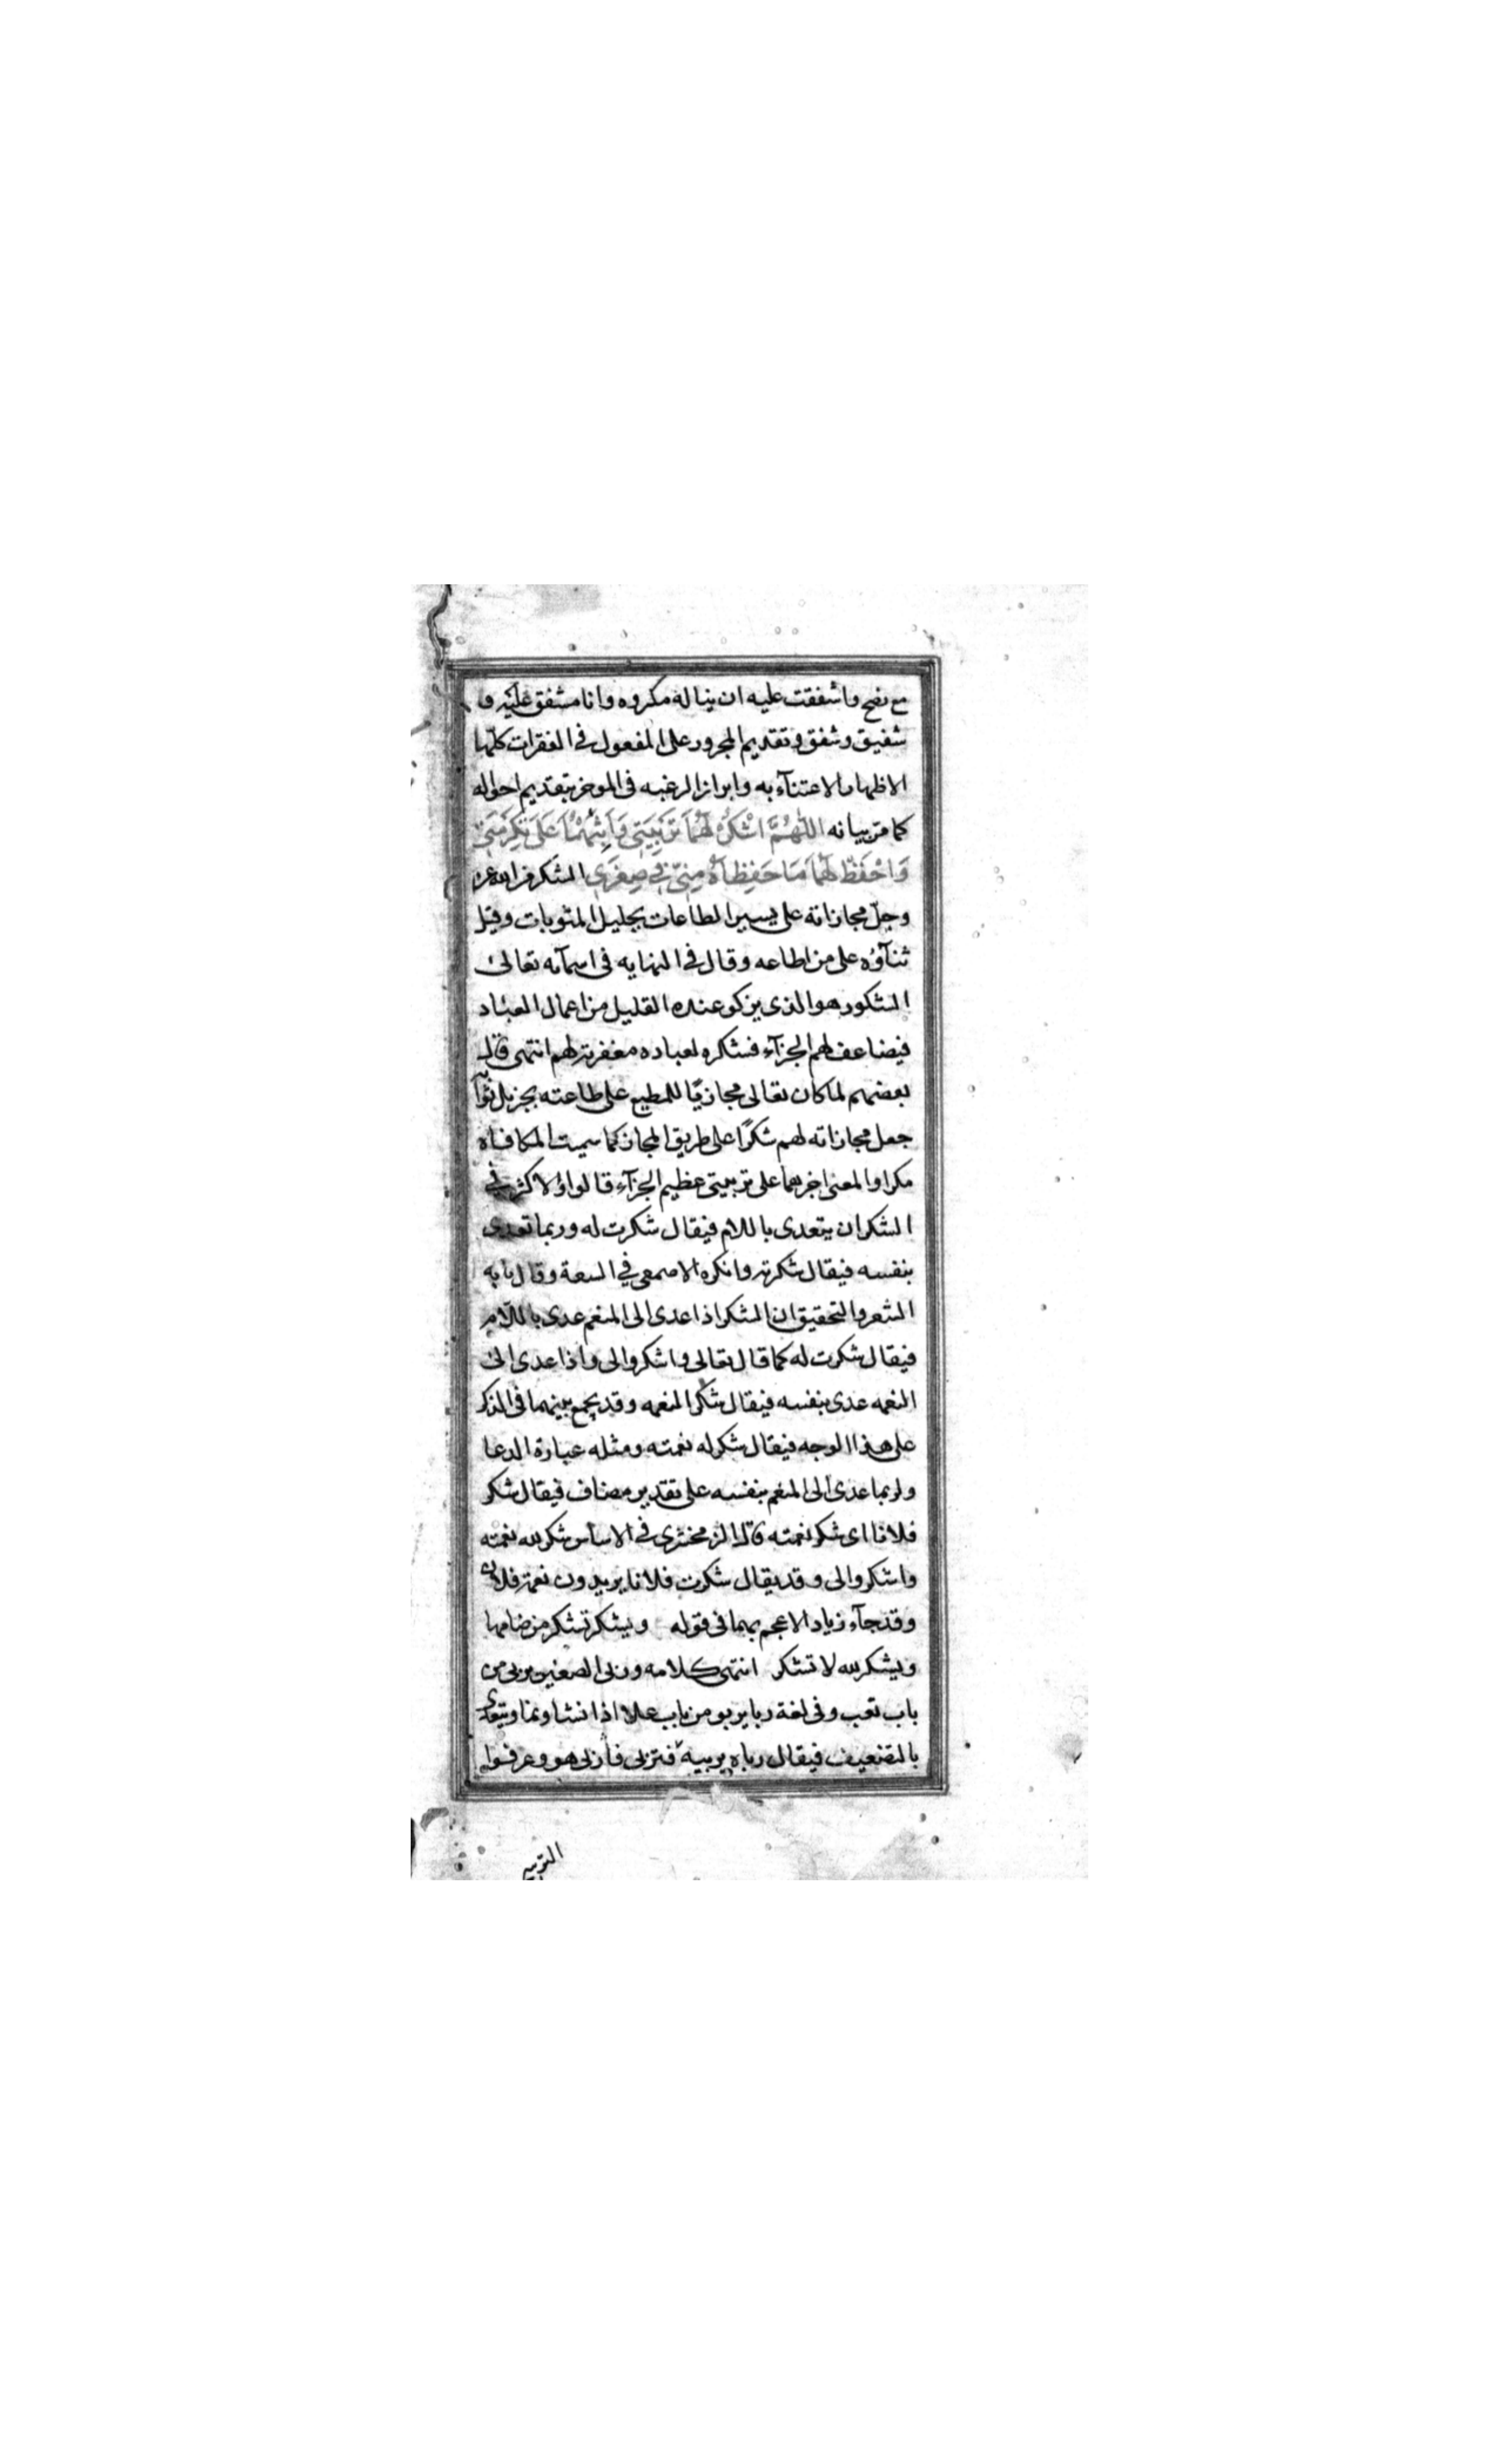 مع نصح واشفقت عليه ان يناله مكروه وانا مشفق عليه و
شفيق وشفق وتقديم المجرور على المفعول في الفقرات كلّها
الاظهار الاعتنآء به وابراز الرغبه فى الموخر بتقديم احواله
كما مرّ بيانه اللّٰهُمَّ اشْكُرْ لَهُمَا تَرْبِيَتِي وَاَثِبْهُمَا عَلَى تَكْرِمَتِي
وَاحْفَظْ لَهُمَا مَا حَفِظَاهُ مِنِّي فِي صِغَرِي الشكر من الله عز
وجلّ مجازاته على يسير الطاعات بجليل المثوبات وقيل
ثنآؤه على من اطاعه وقال في النهايه فى اسمآئه تعالى
الشكور هو الذى يزكو عنده القليل من اعمال العباد
فيضاعف لهم الجزآء فشكره لعباده مغفرته لهم انتهى قال
بعضهم لما كان تعالى مجازيًا للمطيع على طاعته بجزيل ثوابه
جعل مجازاته لهم شكرًا على طريق المجاز كما سميت المكافاه
مكرا والمعنى اجزهما على تربيتى عظيم الجزآء قالوا والاكثر في
الشكر ان يتعدى باللام فيقال شكرت له وربما تعدى
بنفسه فيقال شكرته وانكره الاصمعي في السعة وقال بابه
الشعر والتحقيق ان الشكر اذا عدى الى المنعم عدى باللّام
فيقال شكرت له كما قال تعالى واشكروا لى واذا عدى الى
النعمه عدى بنفسه فيقال شكر النعمه وقد يجمع بينهما فى الذكر
على هذا الوجه فيقال شكر له نعمته ومثله عبارة الدعا
ولربما عدى الى المنعم بنفسه على تقدير مضاف فيقال شكر
فلانا اى شكر نعمته قال الزمخشرى في الاساس شكر لله نعمته
واشكروا لى وقد يقال شكرت فلانا يريدون نعمة فلان
وقد جآء زياد الاعجم بهما فى قوله ويشكر تشكر من ضامها
ويشكر لله لا تشكر انتهى كلامه وربى الصغير يربى من
باب تعب وفى لغة ربا يربو من باب علا اذا نشا ونما ويتعدى
بالتضعيف فيقال رباه يربيه فتربى فازلى هو وعرفوا
التربيه